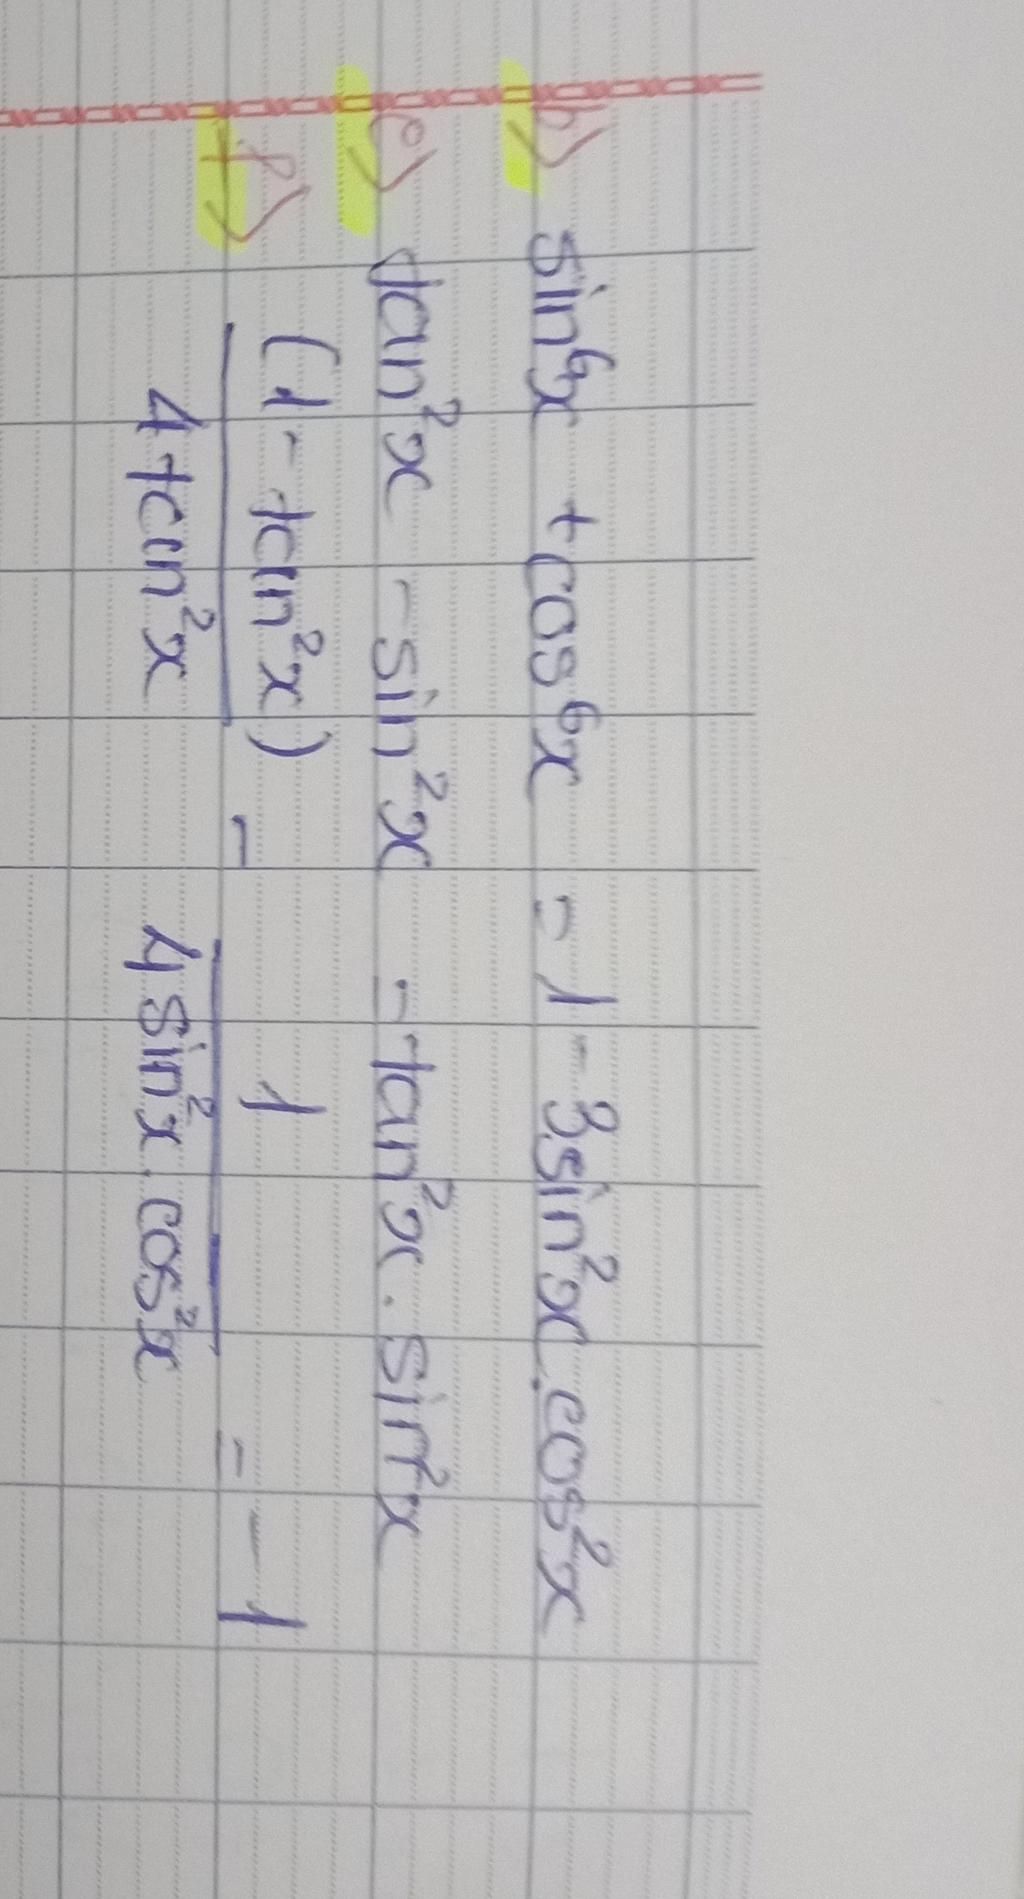 b) sin⁶x + cos⁶x = 1 - 3sin²x.cos²x
e) tan²x - sin²x = tan²x . sin²x
f) (1 - tan²x) / 4 tan²x - 1 / 4 sin²x . cos²x = -1